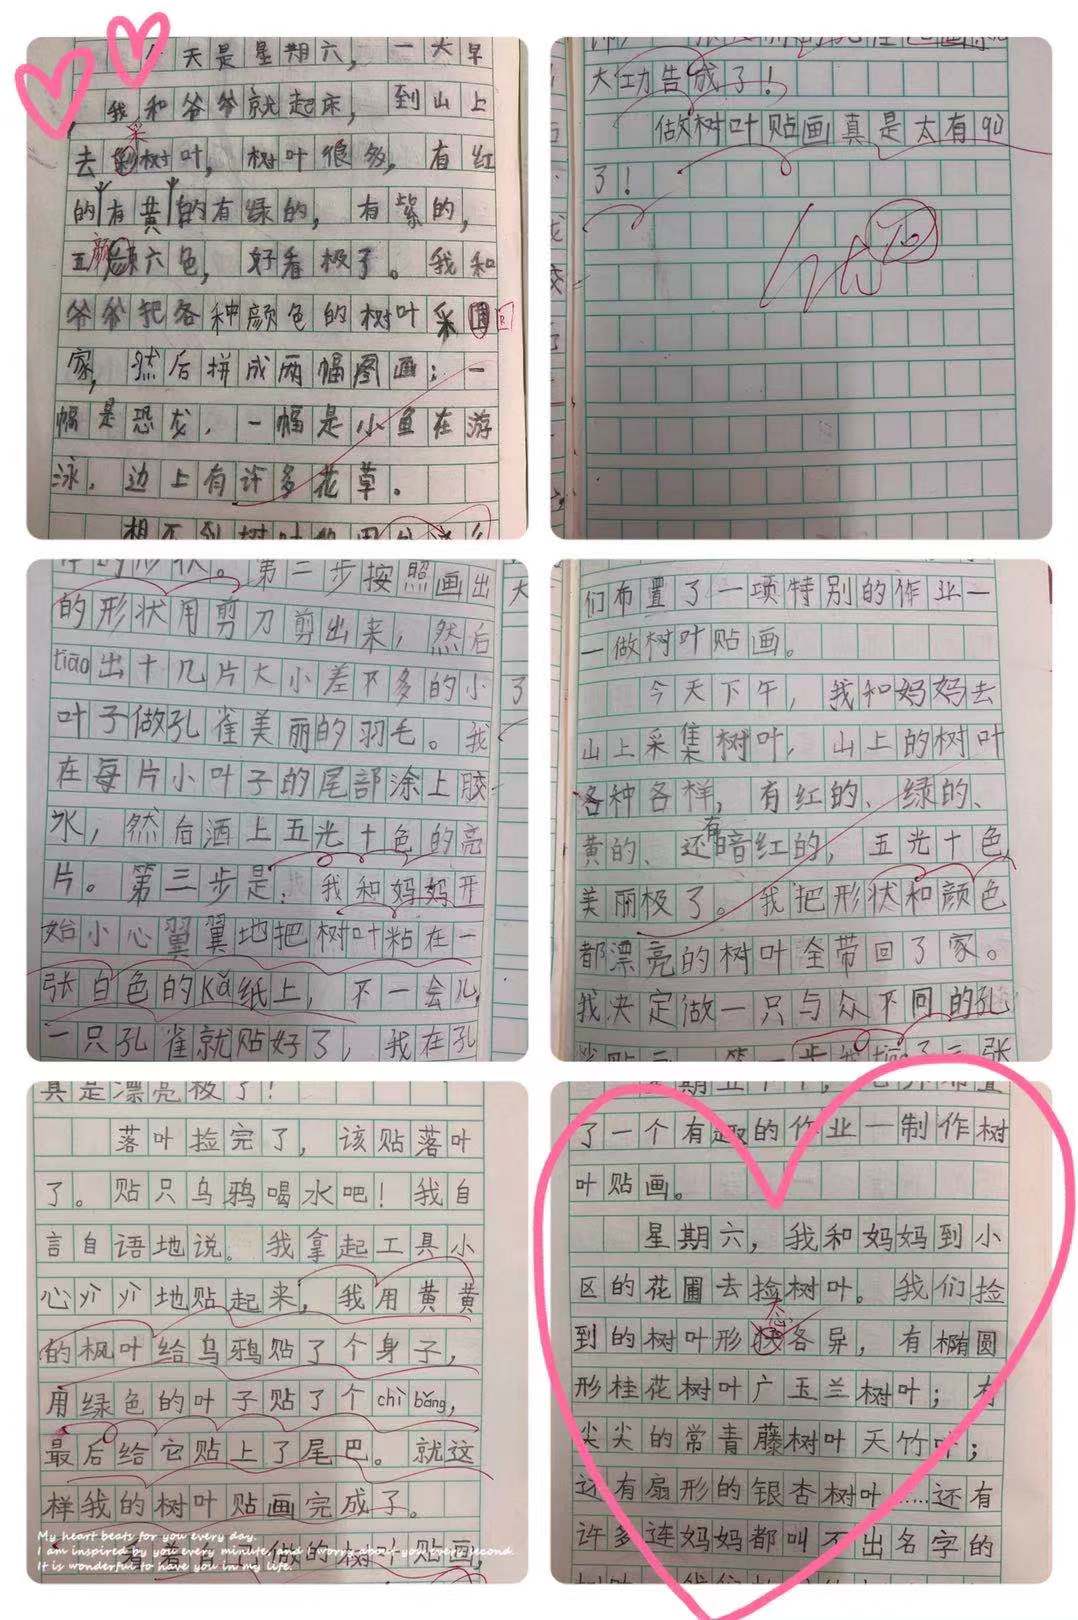 天是星期六，一大早
我和爷爷就起床，到山上
去采树叶，树叶很多，有红
的有黄的有绿的，有紫的，
五颜六色，好看极了。我和
爷爷把各种颜色的树叶采回
家，然后拼成两幅图画：一
幅是恐龙，一幅是小鱼在游
泳，边上有许多花草。
想不到树叶的用
大功告成了！
做树叶贴画真是太有
了！
优
的形状。第二步按照画出
的形状用剪刀剪出来，然后
tiāo出十几片大小差不多的小
叶子做孔雀美丽的羽毛。我
在每片小叶子的尾部涂上胶
水，然后洒上五光十色的亮
片。第三步是，我和妈妈开
始小心翼翼地把树叶粘在一
张白色的kǎ纸上，不一会儿，
一只孔雀就贴好了，我在孔
们布置了一项特别的作业一
一做树叶贴画。
今天下午，我和妈妈去
山上采集树叶，山上的树叶
各种各样，有红的、绿的、
黄的、还有暗红的，五光十色
美丽极了。我把形状和颜色
都漂亮的树叶全带回了家。
我决定做一只与众不同的孔
真是漂亮极了！
落叶捡完了，该贴落叶
了。贴只乌鸦喝水吧！我自
言自语地说。我拿起工具小
心yì yì地贴起来，我用黄黄
的枫叶给乌鸦贴了个身子，
用绿色的叶子贴了个chì bǎng，
最后给它贴上了尾巴。就这
样我的树叶贴画完成了。
看着自己做的树叶贴画，
My heart beats for you every day.
I am inspired by you every minute, and I worry about you every second.
It is wonderful to have you in my life.
了一个有趣的作业一制作树
叶贴画。
星期六，我和妈妈到小
区的花圃去捡树叶。我们捡
到的树叶形态各异，有椭圆
形桂花树叶广玉兰树叶；有
尖尖的常青藤树叶天竹叶；
还有扇形的银杏树叶……还有
许多连妈妈都叫不出名字的